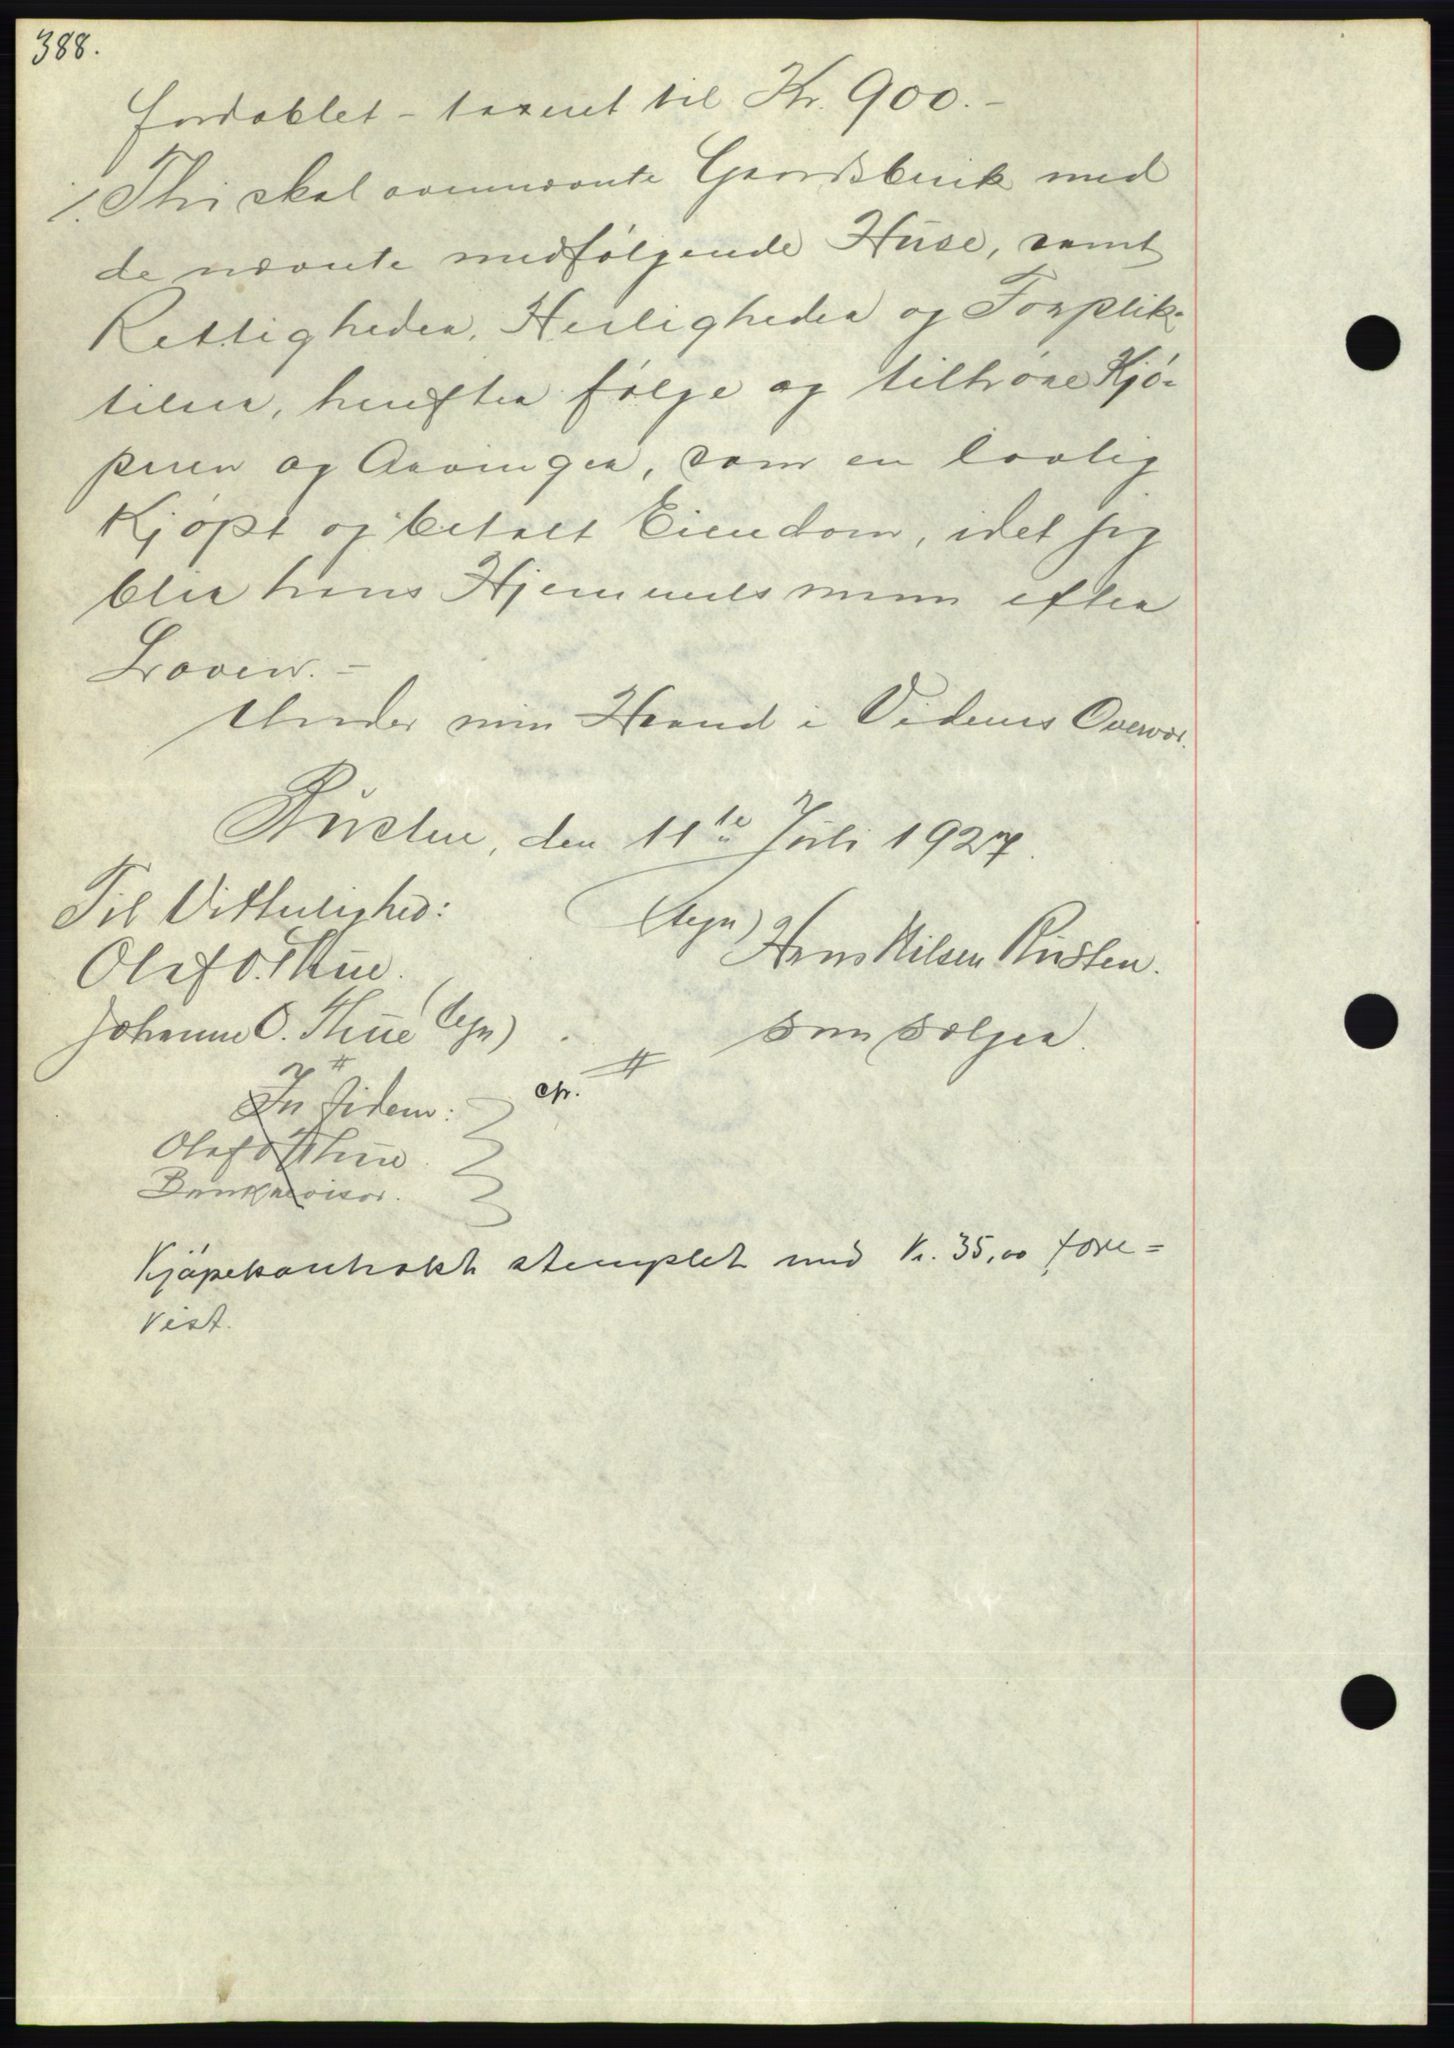 388.
fordoblet - taxeret til Kr. 900.-
Thi skal ovennævnte Gaardsbruk med
de nævnte medfølgende Huse, samt
Rettigheder, Herligheder og Forplik-
telser, herefter følge og tilhøre Kjø-
peren og Arvinger, som en lovlig
kjøpt og betalt Eiendom, idet jeg
blir hans Hjemmelsmann efter
Loven. -
Under min Haand i Vidners Overvær.
Rusten, den 11te Juli 1927.
Til Vitterlighed:
(tegn) Hans Nilsen Rusten.
Olaf O. Thue.
Johanne O. Thue (tegn)
som sælger.
In fidem:
cfr.
Olaf O. Thue.
Bankrevisor.
Kjøpekontrakt stemplet med kr. 35,00 fore=
vist.